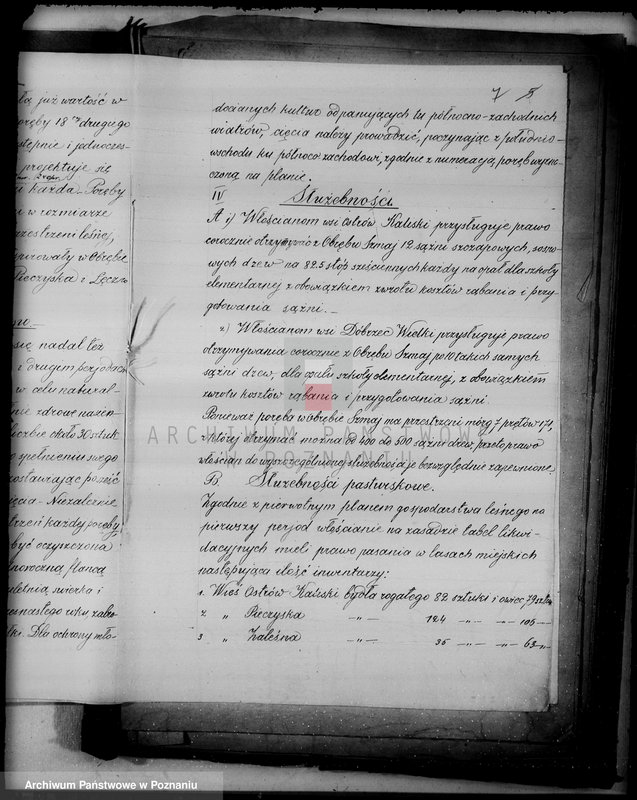 łą już wartość w
poręby 18 drugiego
stępnie i jednoczes-
projektuje się
i każda. Poręby
w rozmiarze
przestrzeni leśnej,
w Obrębie
Pieczyska i
się nadal też
i drugim perjodach
w celu natural-
nie zdrowe nasien-
liczbie około 30 sztuk
spełnieniu swego
zostawiając po
cięcia - Niezależnie
każdej poręby
być oczyszczona
świerka i
Dla ochrony mło-
7 5
docianych kultur od panujących tu północno-zachodnich
wiatrów, cięcia należy prowadzić, poczynając z południo-
wschodu ku północo zachodowi, zgodnie z numeracją poręb wyzna-
czoną na planie.
IV Służebności
A 1) Włościanom wsi Ostrów Kaliski przysługuje prawo
corocznie z Obrębu Szmaj 12 sążni szczapowych, sosno-
wych drew na 82.5 stóp sześciennych każdy na opał dla szkoły
elementarnej z obowiązkiem zwrotu kosztów rąbania i przy-
gotowania sążni. _
2) Włościanom wsi Dóbrzec Wielki przysługuje prawo
otrzymywania corocznie z Obrębu Szmaj po 10 takich samych
sążni drew, dla szkoły elementarnej, z obowiązkiem
zwrotu kosztów rąbania i przygotowania sążni
Ponieważ poręba w Obrębie Szmaj ma przestrzeni mórg 7 prętów 171,
z której otrzymać można od 400 do 500 sążni drew, przeto prawo
włościan do wyszczególnionej służebności jest bezwzględnie zapewnione.
B Służebności pasturskowe.
Zgodnie z pierwotnym planem gospodarstwa leśnego na
pierwszy perjod włościanie na zasadzie tabel likwi-
dacyjnych mieli prawo pasania w lasach miejskich
następującą ilość inwentarzy:
1. Wieś Ostrów Kaliski bydła rogatego 82 sztuki i owiec 79 sztuk
2 " Pieczyska -"- 124 -"- -"- 105 -"-
3 " Zaleśna -"- 36 -"- -"- 63 -"-
ARCHIWUM PAŃSTWOWE
W POZNANIU
Archiwum Państwowe w Poznaniu